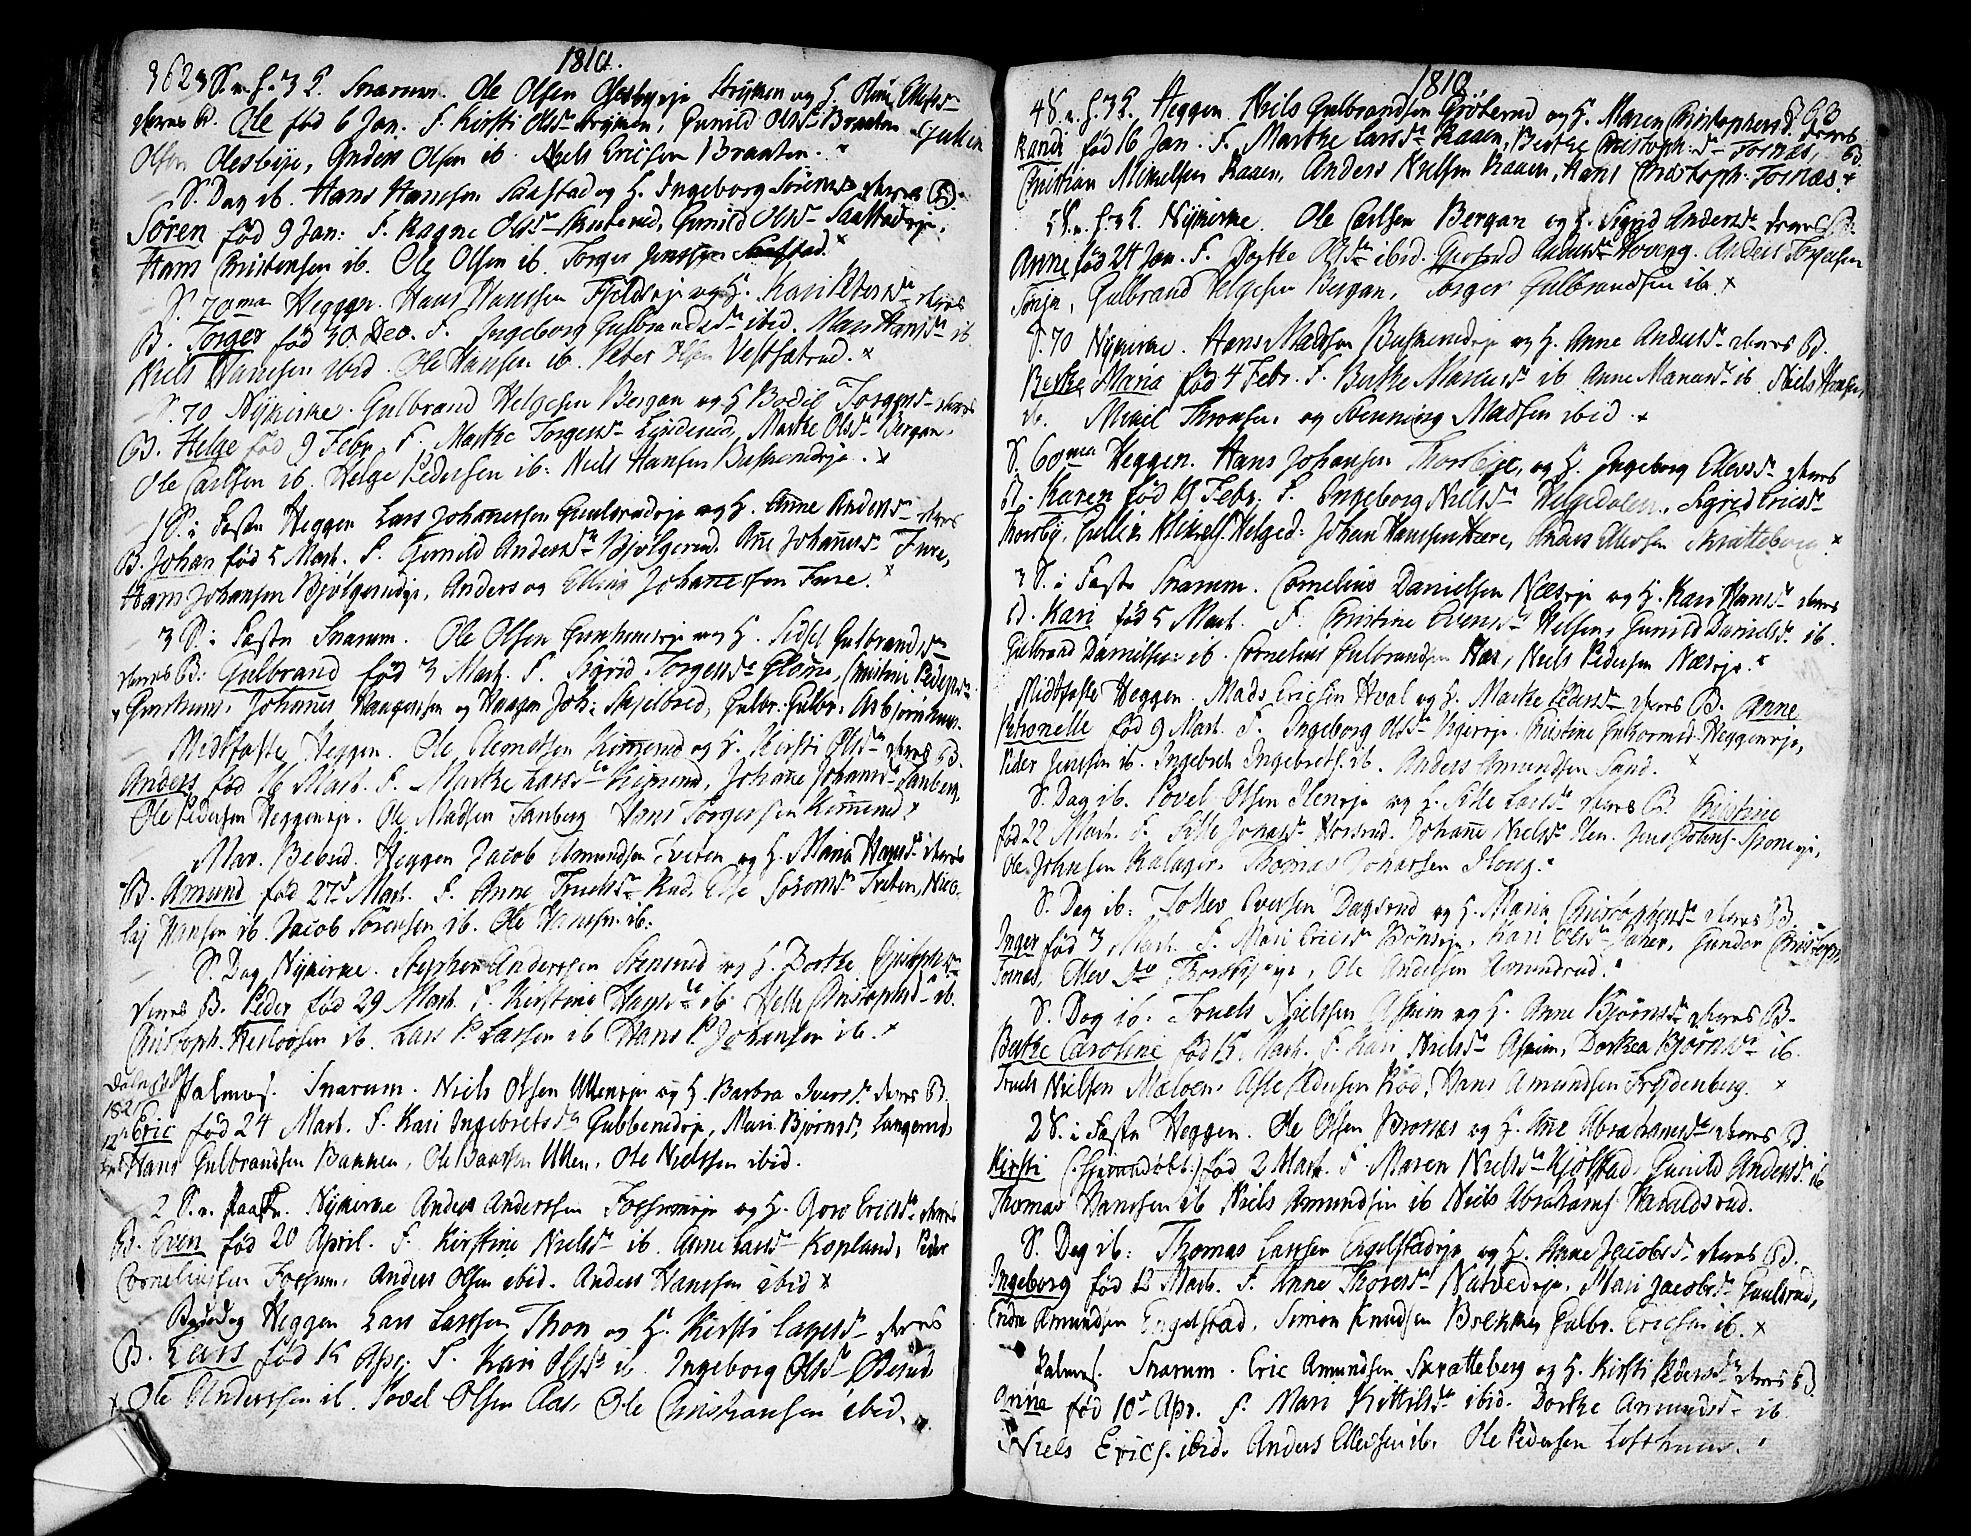 1810.
362 3 S. e. h. 3 K. Snarum. Ole Olsen Olesbyeje Stryken og H. Oline Olesd
deres B. Ole fød 6 Jan. F. Kirsti Olsd Stryken, Gunild Olsd Braaten
Olsen Olesbye, Anders Olsen ib. Niels Ericsen Braaten.
S. Dag ib. Hans Hansen Saastad og H. Ingeborg Sörensd deres B.
Sören fød 9 Jan: F. Ragne Olsd Skuterud, Gunild Olsd Saastadeje,
Hans Christensen ib. Ole Olsen ib. Torger Jenssen Saastad.
S. 70ma Heggen. Hans Hanssen Fjeldeje og H. Kari Petersd deres
B. Torger fød 30 Dec. F. Ingeborg Gulbrandsd ibid. Mari Hansd ib
Niels Hanssen ibid. Ole Hanssen ib. Peter Olsen Vestsatrud.
S. 70 Nykirke. Gulbrand Helgesen Bergan og H Bodil Torgersd deres
B. Helge fød 9 Febr. F. Marthe Torgersd Linderud, Marthe Olsd Bergan,
Ole Carlsen ib. Helge Pedersen ib: Niels Hansen Buskerudeje.
1 S. i Faste Heggen Lars Johannessen Gunlsrudeje og H. Anne Andersd deres
B. Johan fød 5 Mart. F. Gunild Andersd Bjölgerud. Anne Johannesd Fure,
Hans Johansen Bjölgerudeje, Anders og Elling Johannessen Fure.
3 S. i Faste Snarum. Ole Olsen Grushuuseje og H. Sidsel Gulbrandsd
deres B. Gulbrand fød 3 Mart. F. Sigrid Torgersd Glome, Christine Pedersd
Grushuus, Johannes Haagensen og Haagen Joh: Skjelbred, Gulbr. Gulbr. Asbjørnhuus.
Midtfaste Heggen. Ole Amundsen Kimerud og H. Kirsti Olsd deres B.
Anders fød 16 Mart. F. Marthe Larsd Kimerud, Johanne Johansd Tanberg,
Ole Pedersen Heggeneje. Ole Madsen Tanberg Hans Torgersen Kimerud
Mar. Bebud. Heggen Jacob Amundsen Tveten og H. Maria Hansd deres
B. Amund fød 27d Mart. F. Anne Truelsd Rud. Else Sörensd Tveten, Nico-
laj Hansen ib. Jacob Sörensen ib. Ole Hansen ib.
S. Dag Nykirke. Stephen Anderssen Stensrud og H. Dorthe Christophersd
deres B. Peder fød 29 Mart. F. Kirstine Hansd ib. Helle Christophsd ib.
Christoph. Kestoösen ib. Lars P. Larsen ib Hans P. Johansen ib.
Palmes. Snarum. Niels Olsen Ulleneje og H. Barbra Iversd deres B.
Eric fød 24 Mart. F. Kari Ingebretsd Gubberudeje, Mari Bjørnsd Langerud,
Hans Gulbrandsen Bakken, Ole Baarsen Ullen. Ole Nielssen ibid.
2 S. e. Paaske. Nykirke Anders Anderssen Fossumeje og H. Goro Ericsd deres
B. Even fød 20 April. F. Kirstine Nielsd ib. Anne Larsd Kopland, Peder
Corneliussen Fossum, Anders Olsen ibid. Anders Hanssen ibid
Bededag Heggen Lars Larssen Thon og H. Kirsti Lagesd deres
B. Lars fød 15 Apr. F. Kari Olsd ib. Ingeborg Olsd Øderud
Ole Anderssen ib. Povel Olsen Aas. Ole Christiansen ibid.
1810
4 S. e. h. 3 K. Heggen. Niels Gulbrandsen Grøterud og H. Maren Christophersd deres B.
Randi fød 16 Jan. F. Marthe Larsd Raaen, Berthe Christoph.d Tornæs,
Christian Mikkelsen Raaen, Anders Nielsen Raaen, Hans Christoph. Tornæs.
5 S. e. h. 3 K. Nykirke. Ole Carlsen Bergan og H. Sigrid Andersd deres B.
Anne fød 24 Jan. F. Dorthe Olsd ibid. Giertrud Andersd Hoving. Anders Torgersen
Gulbrand Helgesen Bergan, Torger Gulbrandsen ib.
S. 70 Nykirke. Hans Madsen Buskerudeje og H. Anne Andersd deres B.
Berthe Maria fød 4 Febr. F. Berthe Marcusd ib Anne Marcusd ib. Niels Hansen,
ib. Mikel Thronsen og Henning Madsen ibid.
S. 60ma Heggen. Hans Johansen Thorsbyeje, og H. Ingeborg Ellevsd deres
B. Karen fød 15 Febr. F. Ingeborg Nielsd Helgedalen, Sigrid Ericsd
Thorsby, Gulbr. Mikkels. Helged: Johan Hanssen Hære, Anders Ellevsen Skratteberg.
3 S. i Faste Snarum. Cornelius Danielsen Næseje og H. Kari Hansd deres
B. Kari fød 5 Mart. F. Christine Evensd Helsen, Gunild Danielsd ib.
Gulbrand Danielsen ib. Cornelius Gulbrandsen Næs, Niels Pedersen Næseje.
Midtfaste Heggen. Mads Ericsen Hval og H. Marthe Pedersd deres B. Anne
Petronelle fød 9 Mart. F. Ingeborg Olsd Vigereje. Christine Guttormsd Heggeneje,
Peder Jenssen ib. Ingebreth Ingebrets. ib. Anders Amundsen Sand.
S. Dag ib. Povel Olsen Heneje og H. Sille Larsd deres B. Christine
fød 22 Mart. F. Sille Jonasd Horsrud. Johanne Nielsd Hen. Jens Johans. Sponeje,
Ole Johnsen Kalager. Thomas Johassen Houg.
S. Dag ib: Tollev Eversen Dagsrud og H. Maria Christophersd deres B.
Inger fød 3 Mart. F. Mari Ericsd Bøneje. Kari Olsd Gunder Christoph.
Tornæs, Ellev do Thorsbyeje, Ole Andersen Amundrud.
S. Dag ib. Truels Nielssen Askim og H. Anne Bjørnsd deres B.
Berthe Caroline fød 15 Mart. F. Kari Nielsd Askim, Dorthea Bjørnsd ib.
Truels Nielsen Maloen, Asle Pedersen Rød, Hans Amundsen Frydenberg.
2 S. i Faste Heggen. Ole Olsen Bronæs og H. Anne Abrahamsd deres B.
Kirsti (Hjemmedøbt.) fød 2 Mart. F. Maren Nielsd Kjøstad, Gunild Andersd ib
Thomas Hanssen ib Niels Amundsen ib Niels Abrahams. Haraldsrud.
S. Dag ib: Thomas Larssen Engelstadeje og H. Anne Jacobsd deres B.
Ingeborg fød 12 Mart. F. Anne Thoresd Natvedeje. Mari Jacobsd Gunlsrud,
Endre Amundsen Engelstad, Simon Knudsen Brekke, Gulbr. Ericsen ib.
Palmes. Snarum. Eric Amundsen Skratteberg og H. Kirsti Pedersd deres B.
Anne fød 10d Apr. F. Mari Kittilsd ibid. Dorthe Amundsd ib
Niels Erics. ibid. Anders Ellevsen ib. Ole Pedersen Lofthuus.